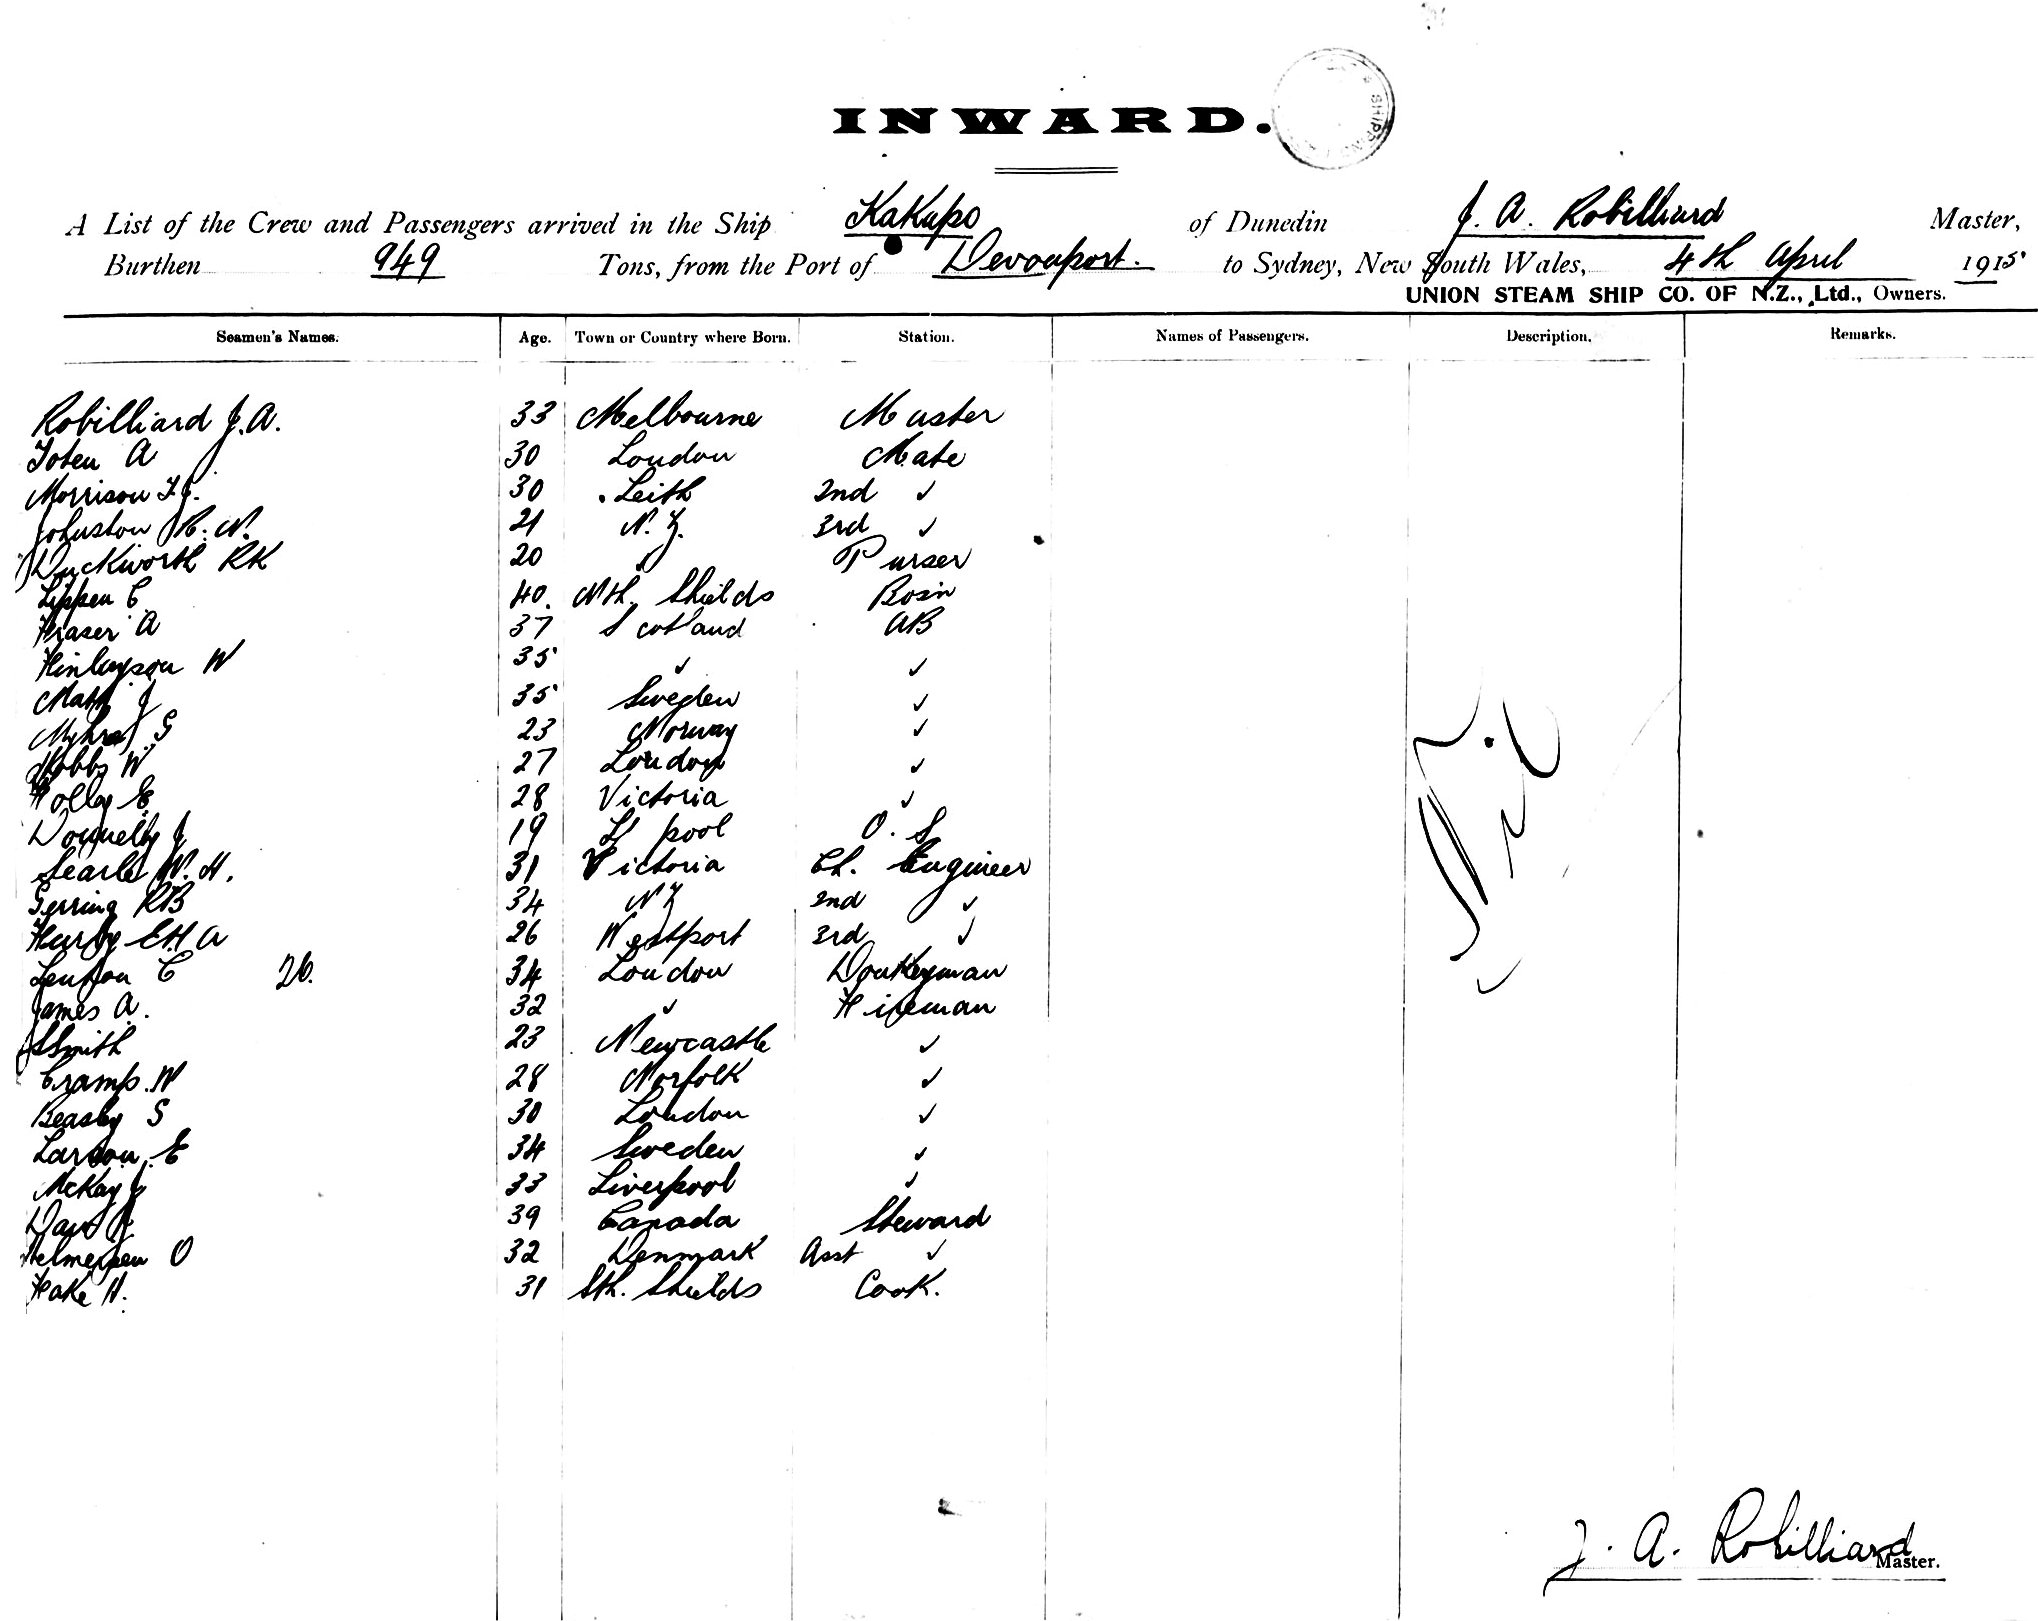 INWARD.
SHIPPING
A List of the Crew and Passengers arrived in the Ship Kakapo of Dunedin J. A. Robilliard Master,
Burthen 949 Tons, from the Port of Devonport. to Sydney, New South Wales, 4th April 1915
UNION STEAM SHIP CO. OF N.Z., Ltd., Owners.
Seamen's Names. Age. Town or Country where Born. Station. Names of Passengers. Description. Remarks.
Robilliard J. A. 33 Melbourne Master
A 30 London Mate
Morrison 30 Leith 2nd ✓
Johnston R. N. 21 N. Z. 3rd ✓
Duckworth RK 20 ✓ Purser
Lippen C 40. Nth. Shields Bosin
Fraser A 37 Scotland AB
Finlayson W 35 ✓ ✓
J 35 Sweden ✓
S 23 Norway ✓
Hobbs W 27 London ✓
E. 28 Victoria ✓
Donnelly J 19 L'pool O. S.
Searle W. H. 31 Victoria Ch. Engineer
Gerring RB 34 NZ 2nd ✓
E H A 26 Westport 3rd ✓
C 26. 34 London Donkeyman
James A. 32 ✓ Fireman
Smith 23 Newcastle ✓
Cramp. W 28 Norfolk ✓
Beasley S 30 London ✓
Larson. E 34 Sweden ✓
McKay J 33 Liverpool ✓
39 Canada Steward
O 32 Denmark Asst ✓
Hake H. 31 Sth. Shields Cook.
Nil
J. A. Robilliard
Master.